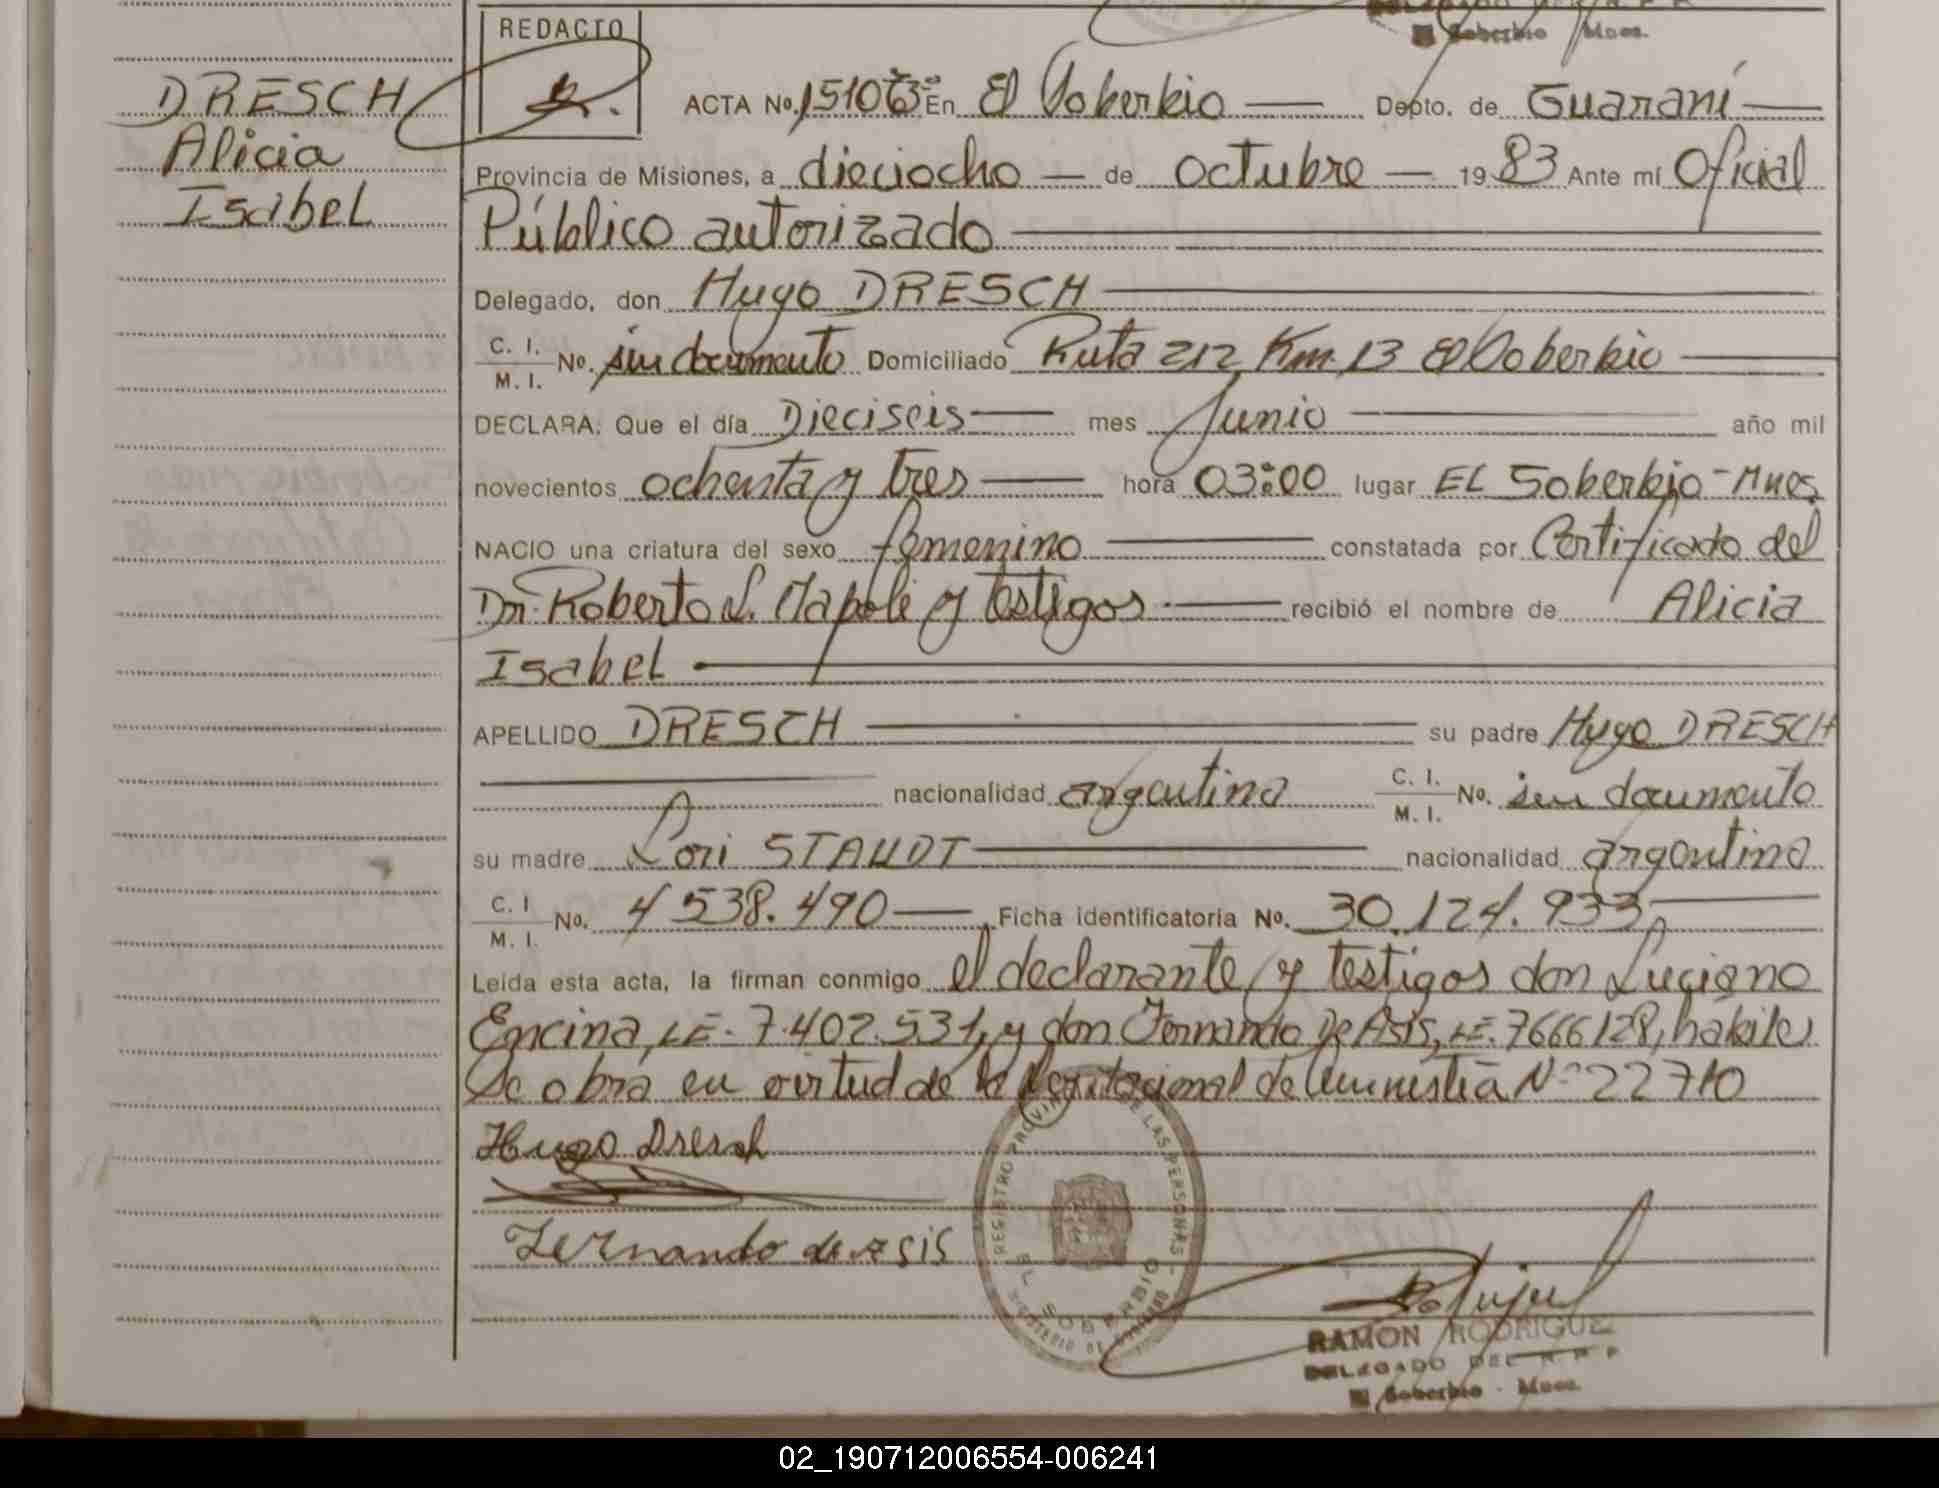 REDACTO
DRESCH
Alicia
Isabel
ACTA No. En El Soberbio Depto. de Guaraní
Provincia de Misiones, a dieciocho de octubre 1983 Ante mí Oficial
Público autorizado
Delegado, don Hugo DRESCH
C. I. M. I. No. sin documento Domiciliado Ruta 212 Km. 13 El Soberbio
DECLARA: Que el día Dieciseis mes Junio año mil
novecientos ochenta y tres hora 03:00 lugar EL Soberbio - Mnes
NACIO una criatura del sexo femenino constatada por Certificado del
Dr. Roberto L. y testigos recibió el nombre de Alicia
Isabel
APELLIDO DRESCH su padre Hugo DRESCH
nacionalidad argentina C. I. M. I. No. sin documento
su madre Lori STAUDT nacionalidad argentina
C. I M. I. No. 4538.490 Ficha identificatoria No. 30.124.933
Leída esta acta, la firman conmigo el declarante y testigos don Luciano
Encina, LE. 7.402.531, y don Fernando De Asis, LE. 7666128, hábiles
Se obra en virtud de la Ley Nacional de Amnistía Nº 22710
Hugo Dresch
Fernando de asis
REGISTRO PROVINCIAL DE LAS PERSONAS
EL SOBERBIO
RAMON RODRIGUEZ
DELEGADO DEL R. P. P
El Soberbio - Mnes.
02_190712006554-006241